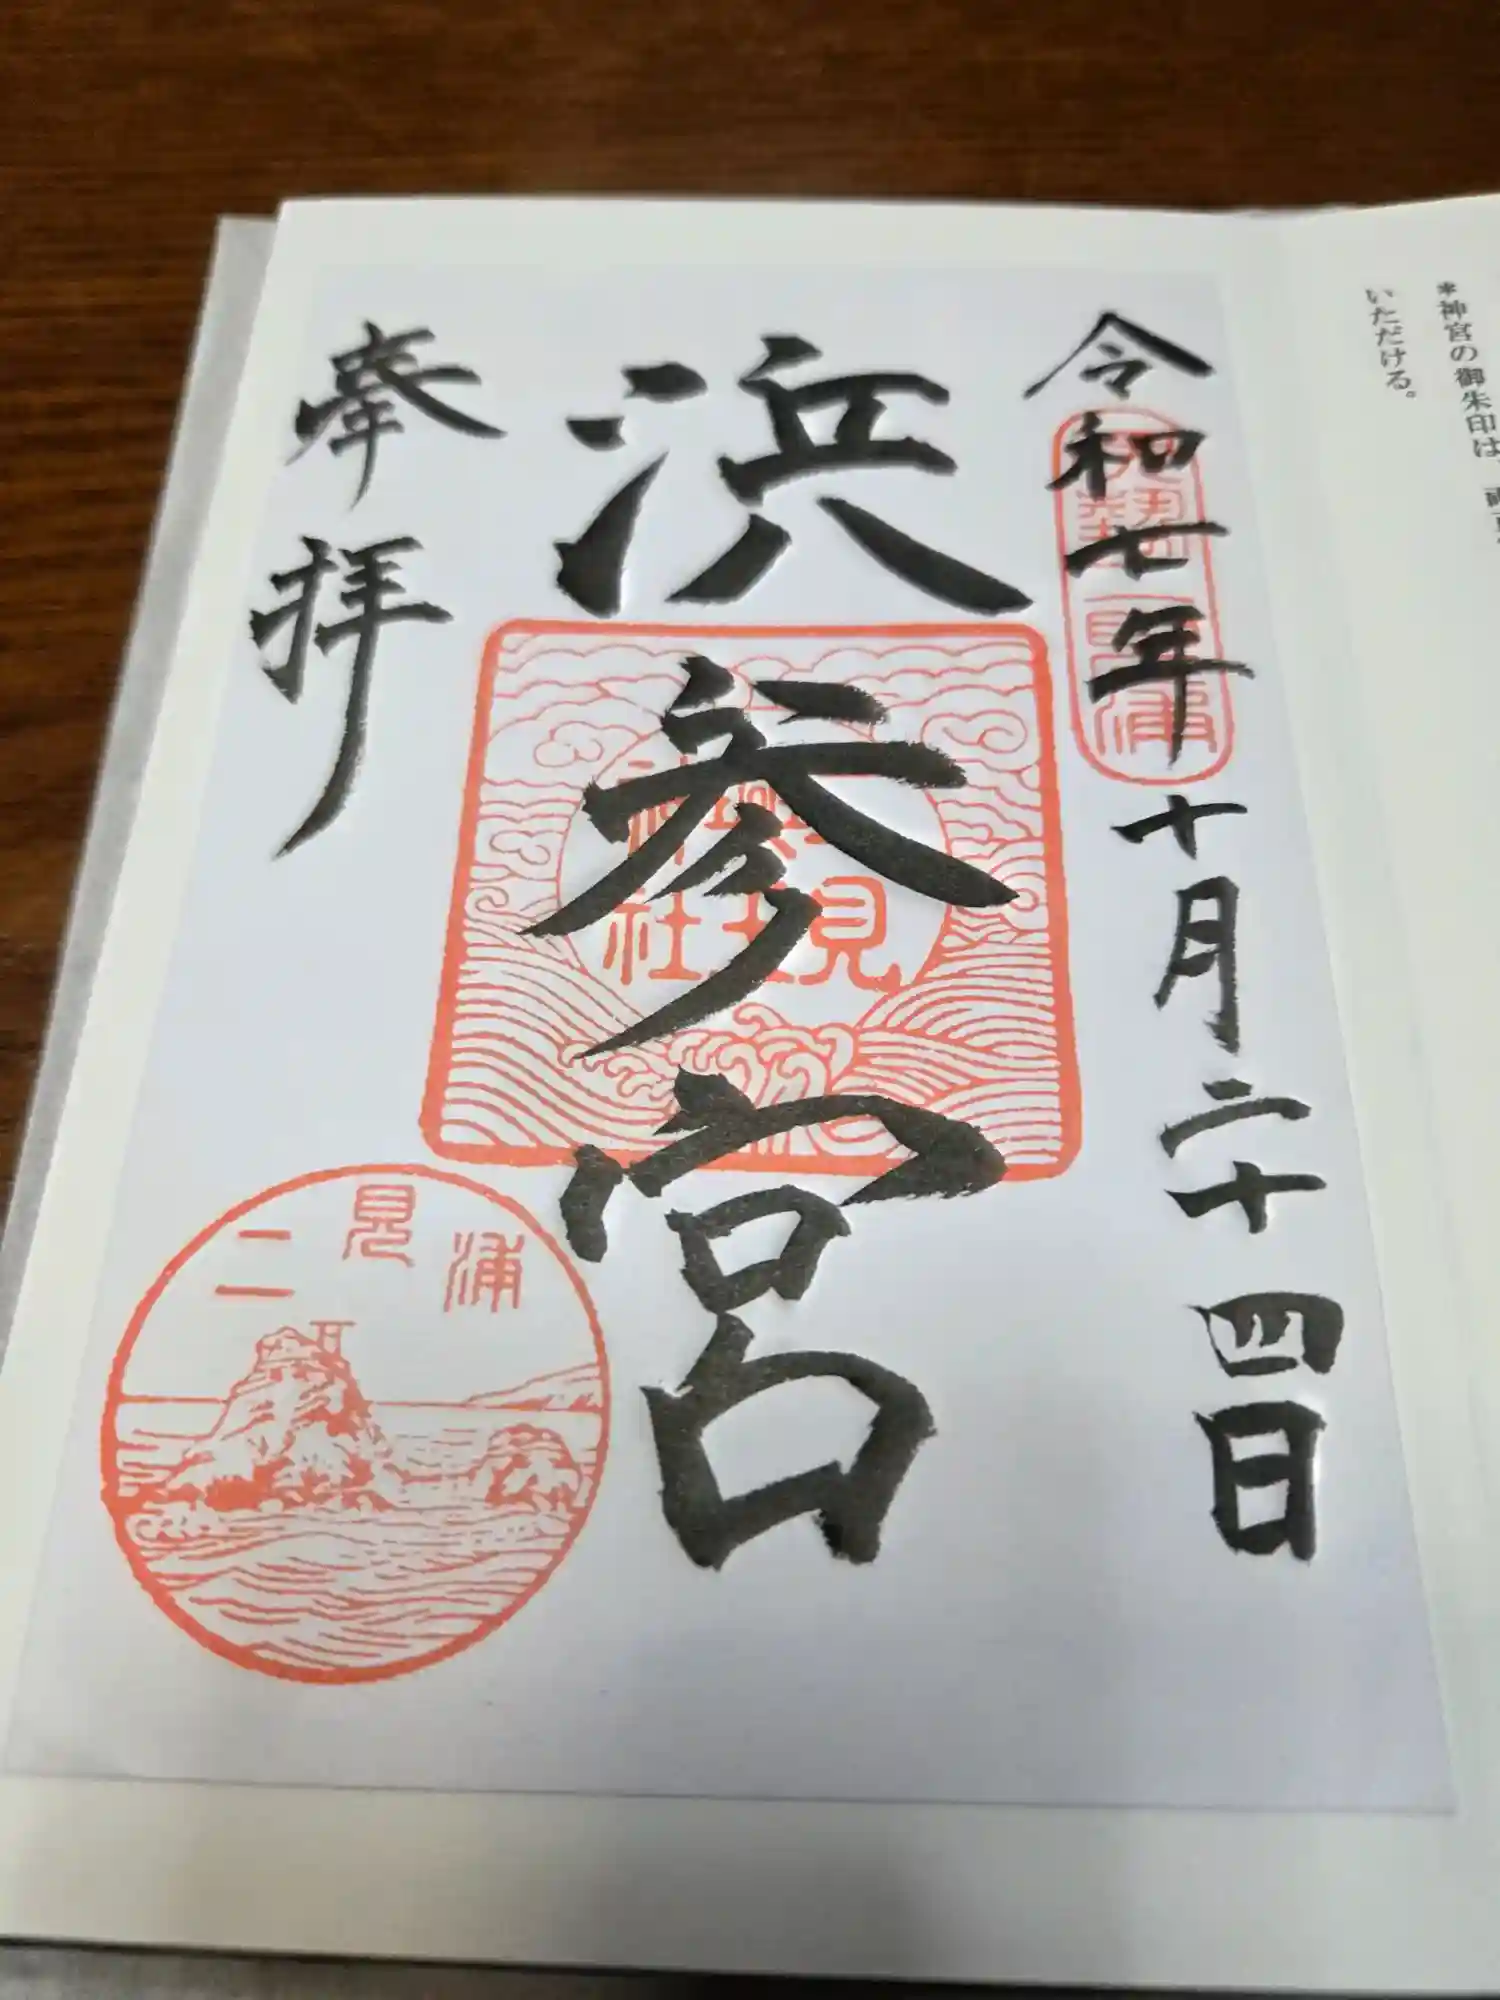 *神宮の御朱印は、
いただける。
令和七年十月二十四日
伊勢二見浦
浜参宮
二見興玉神社
奉拝
二見浦